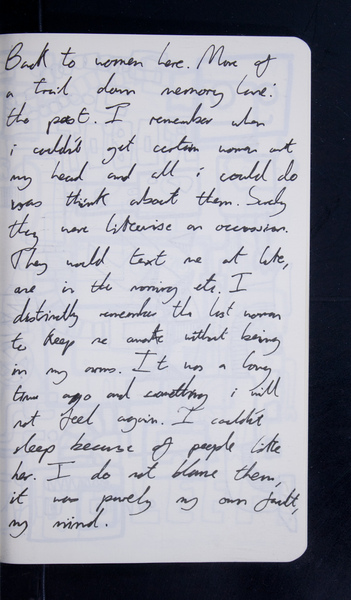 Back to women here. More of
a trail down memory lane:
the past. I remember when
i couldn't get certain women out
my head and all i could do
was think about them. Surely
they were likewise on occassion.
They would text me at like,
one in the morning etc. I
distinctly remember the last woman
to keep me awake without being
in my arms. It was a long
time ago and something i will
not feel again. I couldn't
sleep because of people like
her. I do not blame them,
it was purely my own fault,
my mind.